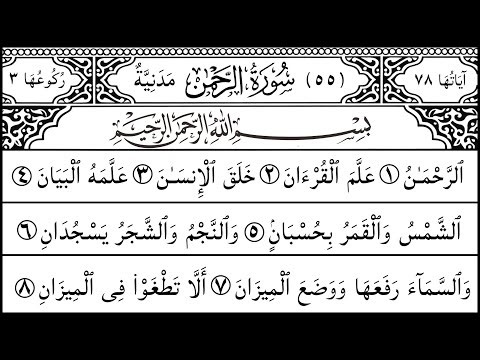 آيَاتُهَا ٧٨ (٥٥) سُورَةُ الرَّحْمٰنِ مَدَنِيَّةٌ رُكُوعُهَا ٣
بِسْمِ اللهِ الرَّحْمٰنِ الرَّحِيْمِ
الرَّحْمَـٰنُ ١ عَلَّمَ الْقُرْءَانَ ٢ خَلَقَ الْإِنسَـٰنَ ٣ عَلَّمَهُ الْبَيَانَ ٤
الشَّمْسُ وَالْقَمَرُ بِحُسْبَانٍ ٥ وَالنَّجْمُ وَالشَّجَرُ يَسْجُدَانِ ٦
وَالسَّمَآءَ رَفَعَهَا وَوَضَعَ الْمِيزَانَ ٧ أَلَّا تَطْغَوْا۟ فِى الْمِيزَانِ ٨